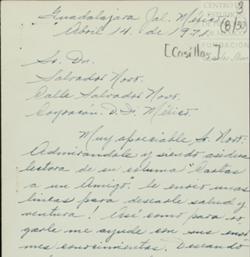 Guadalajara Jal. México
Abril 14 de 1971.
[Casillas]
Sr. Dn.
Salvador Novo.
Calle Salvador Novo
Coyoacán. D.F. México.
Muy apreciable Sr. Novo.
Admirandole y siendo asidua
lectora de su columna "Cartas
a un Amigo" le envío unas
lineas para desearle salud y
ventura! Así como para
garle me ayude con sus enor
mes conocimientos. Deseando